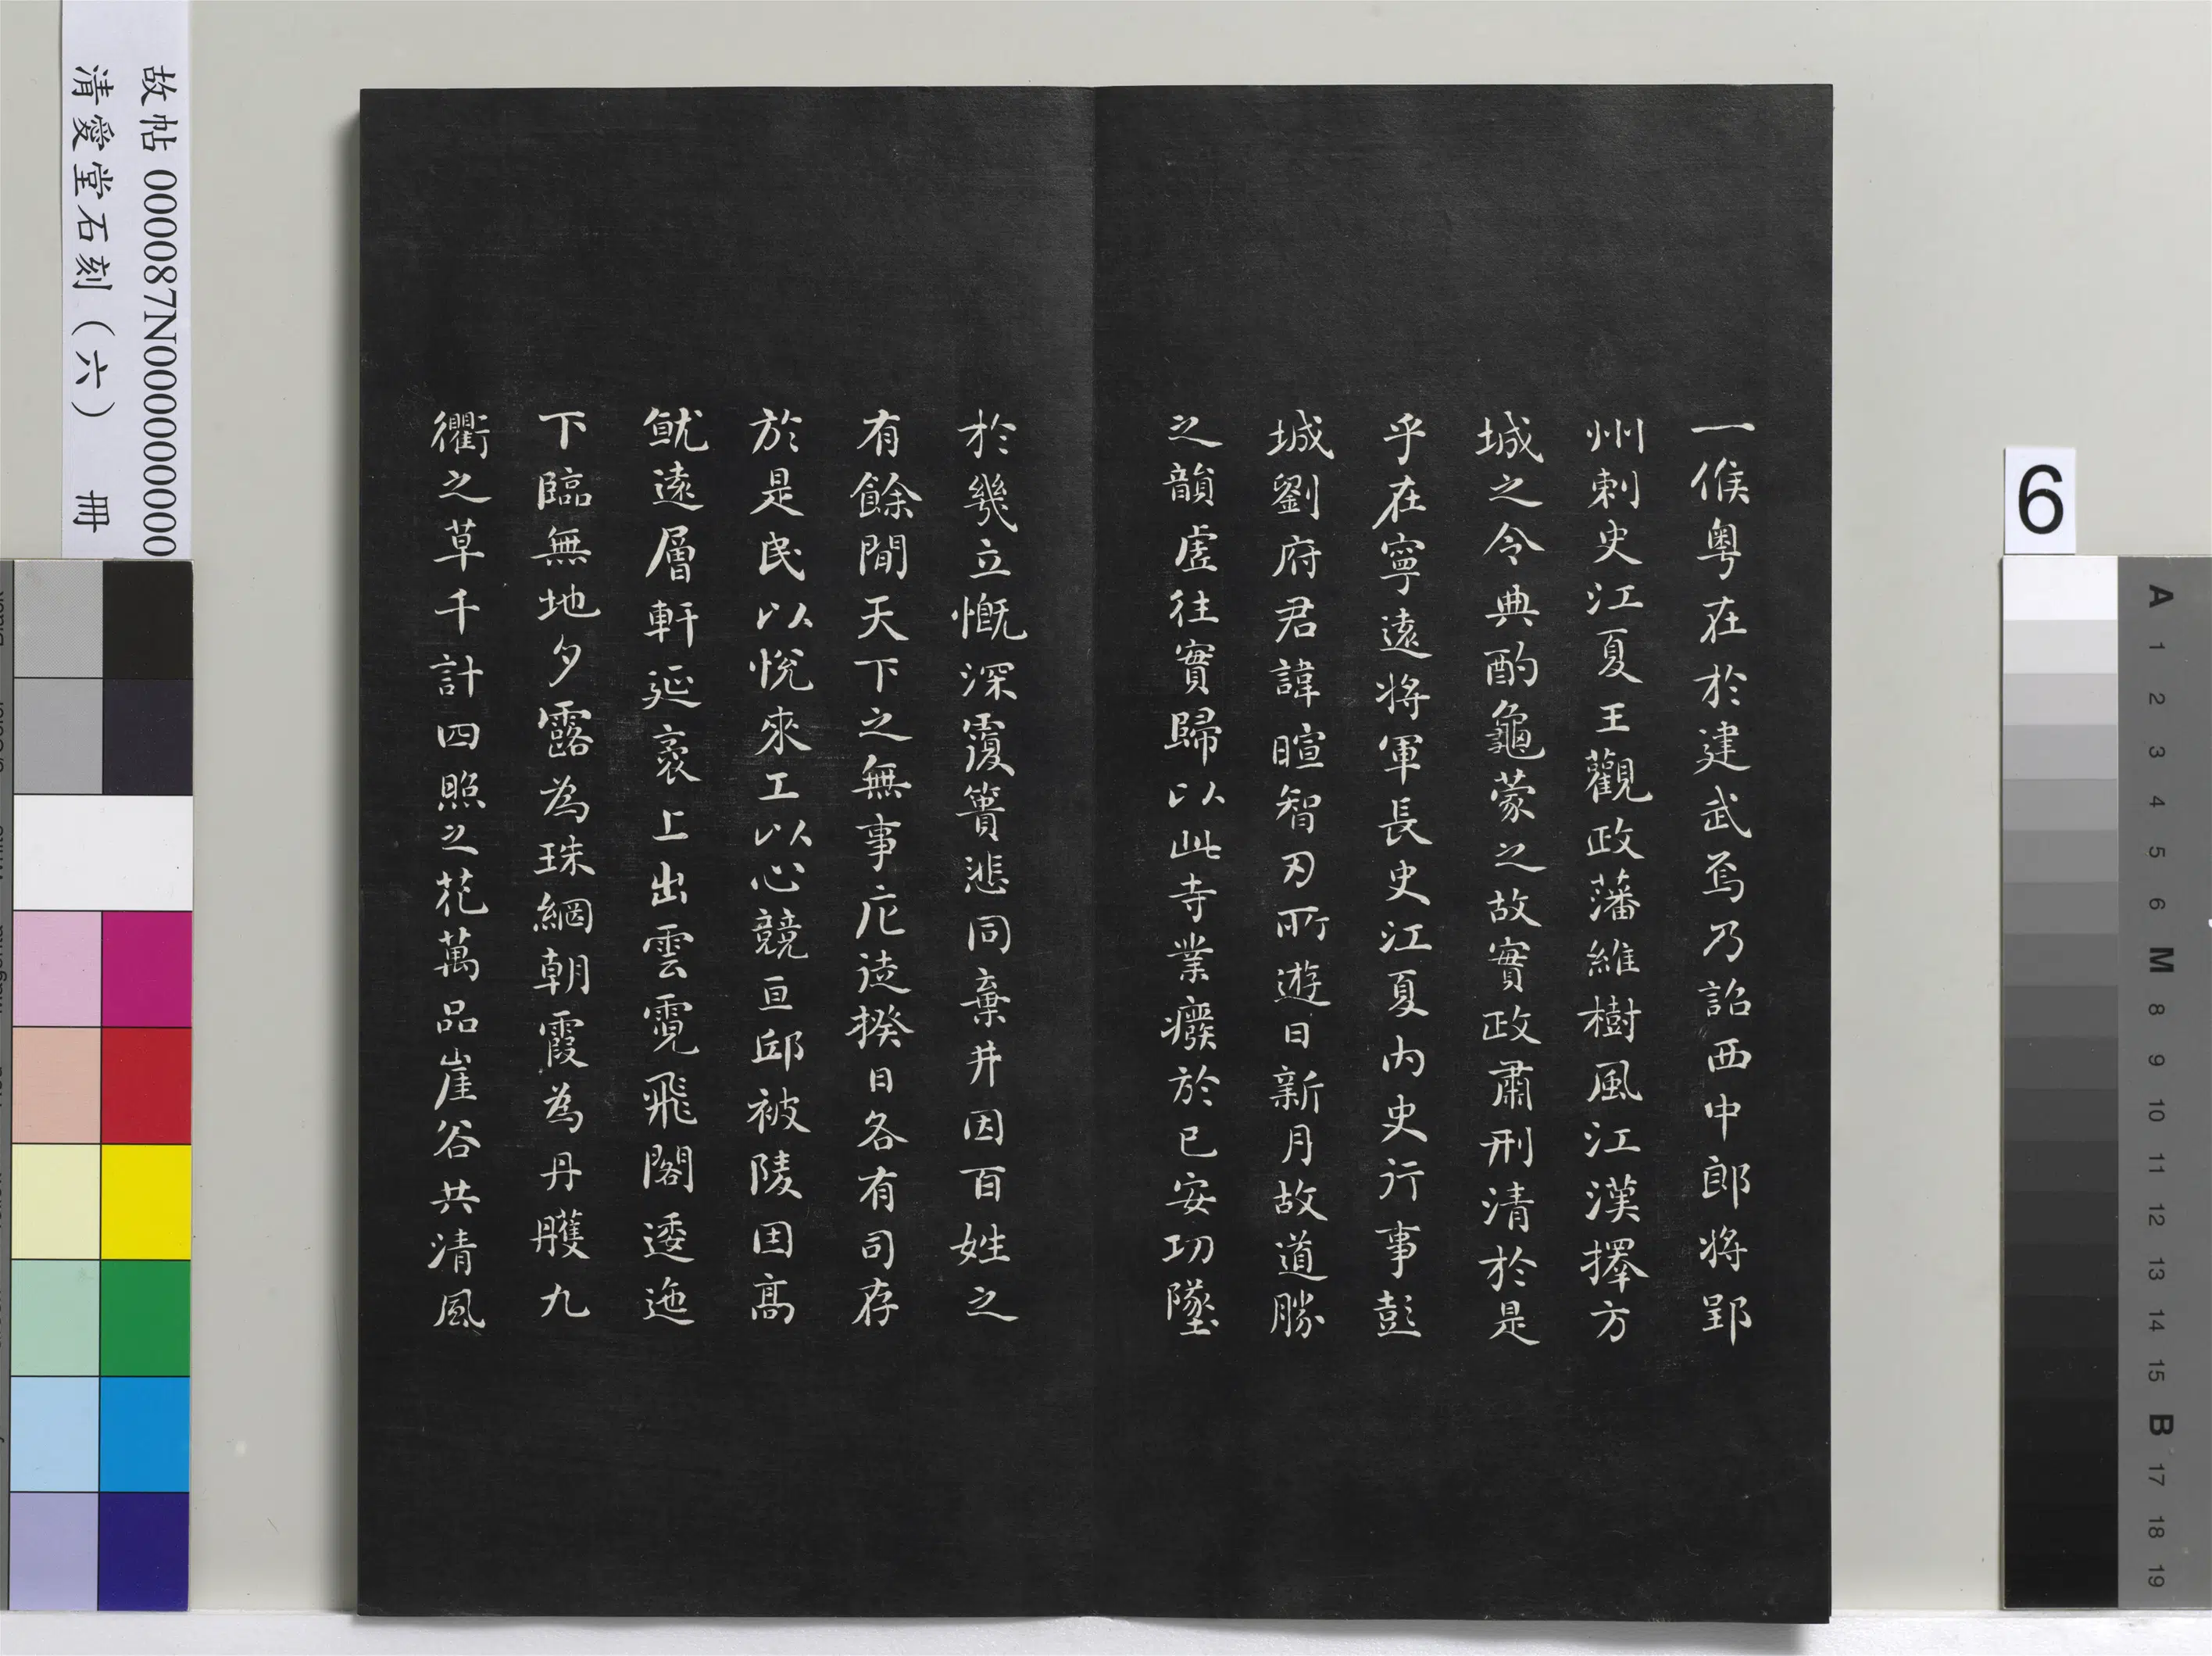 一候粤在於建武焉乃詔西中郎將郢
州刺史江夏王觀政藩維樹風江漢擇方
城之令典酌龜蒙之故實政肅刑清於是
乎在寧遠將軍長史江夏內史行事彭
城劉府君諱暄智刃所遊日新月故道勝
之韻虛往實歸以此寺業癈於已安功墜
於幾立慨深覆簣悲同棄井因百姓之
有餘閒天下之無事庀徒揆日各有司存
於是民以悅來工以心競亘邱被陵因高
就遠層軒延袤上出雲霓飛閣逶迤
下臨無地夕露為珠網朝霞為丹雘九
衢之草千計四照之花萬品崖谷共清風
故帖 000087N000000000
清愛堂石刻（六） 冊
6
A
1
2
3
4
5
6
M
8
9
10
11
12
13
14
15
B
17
18
19